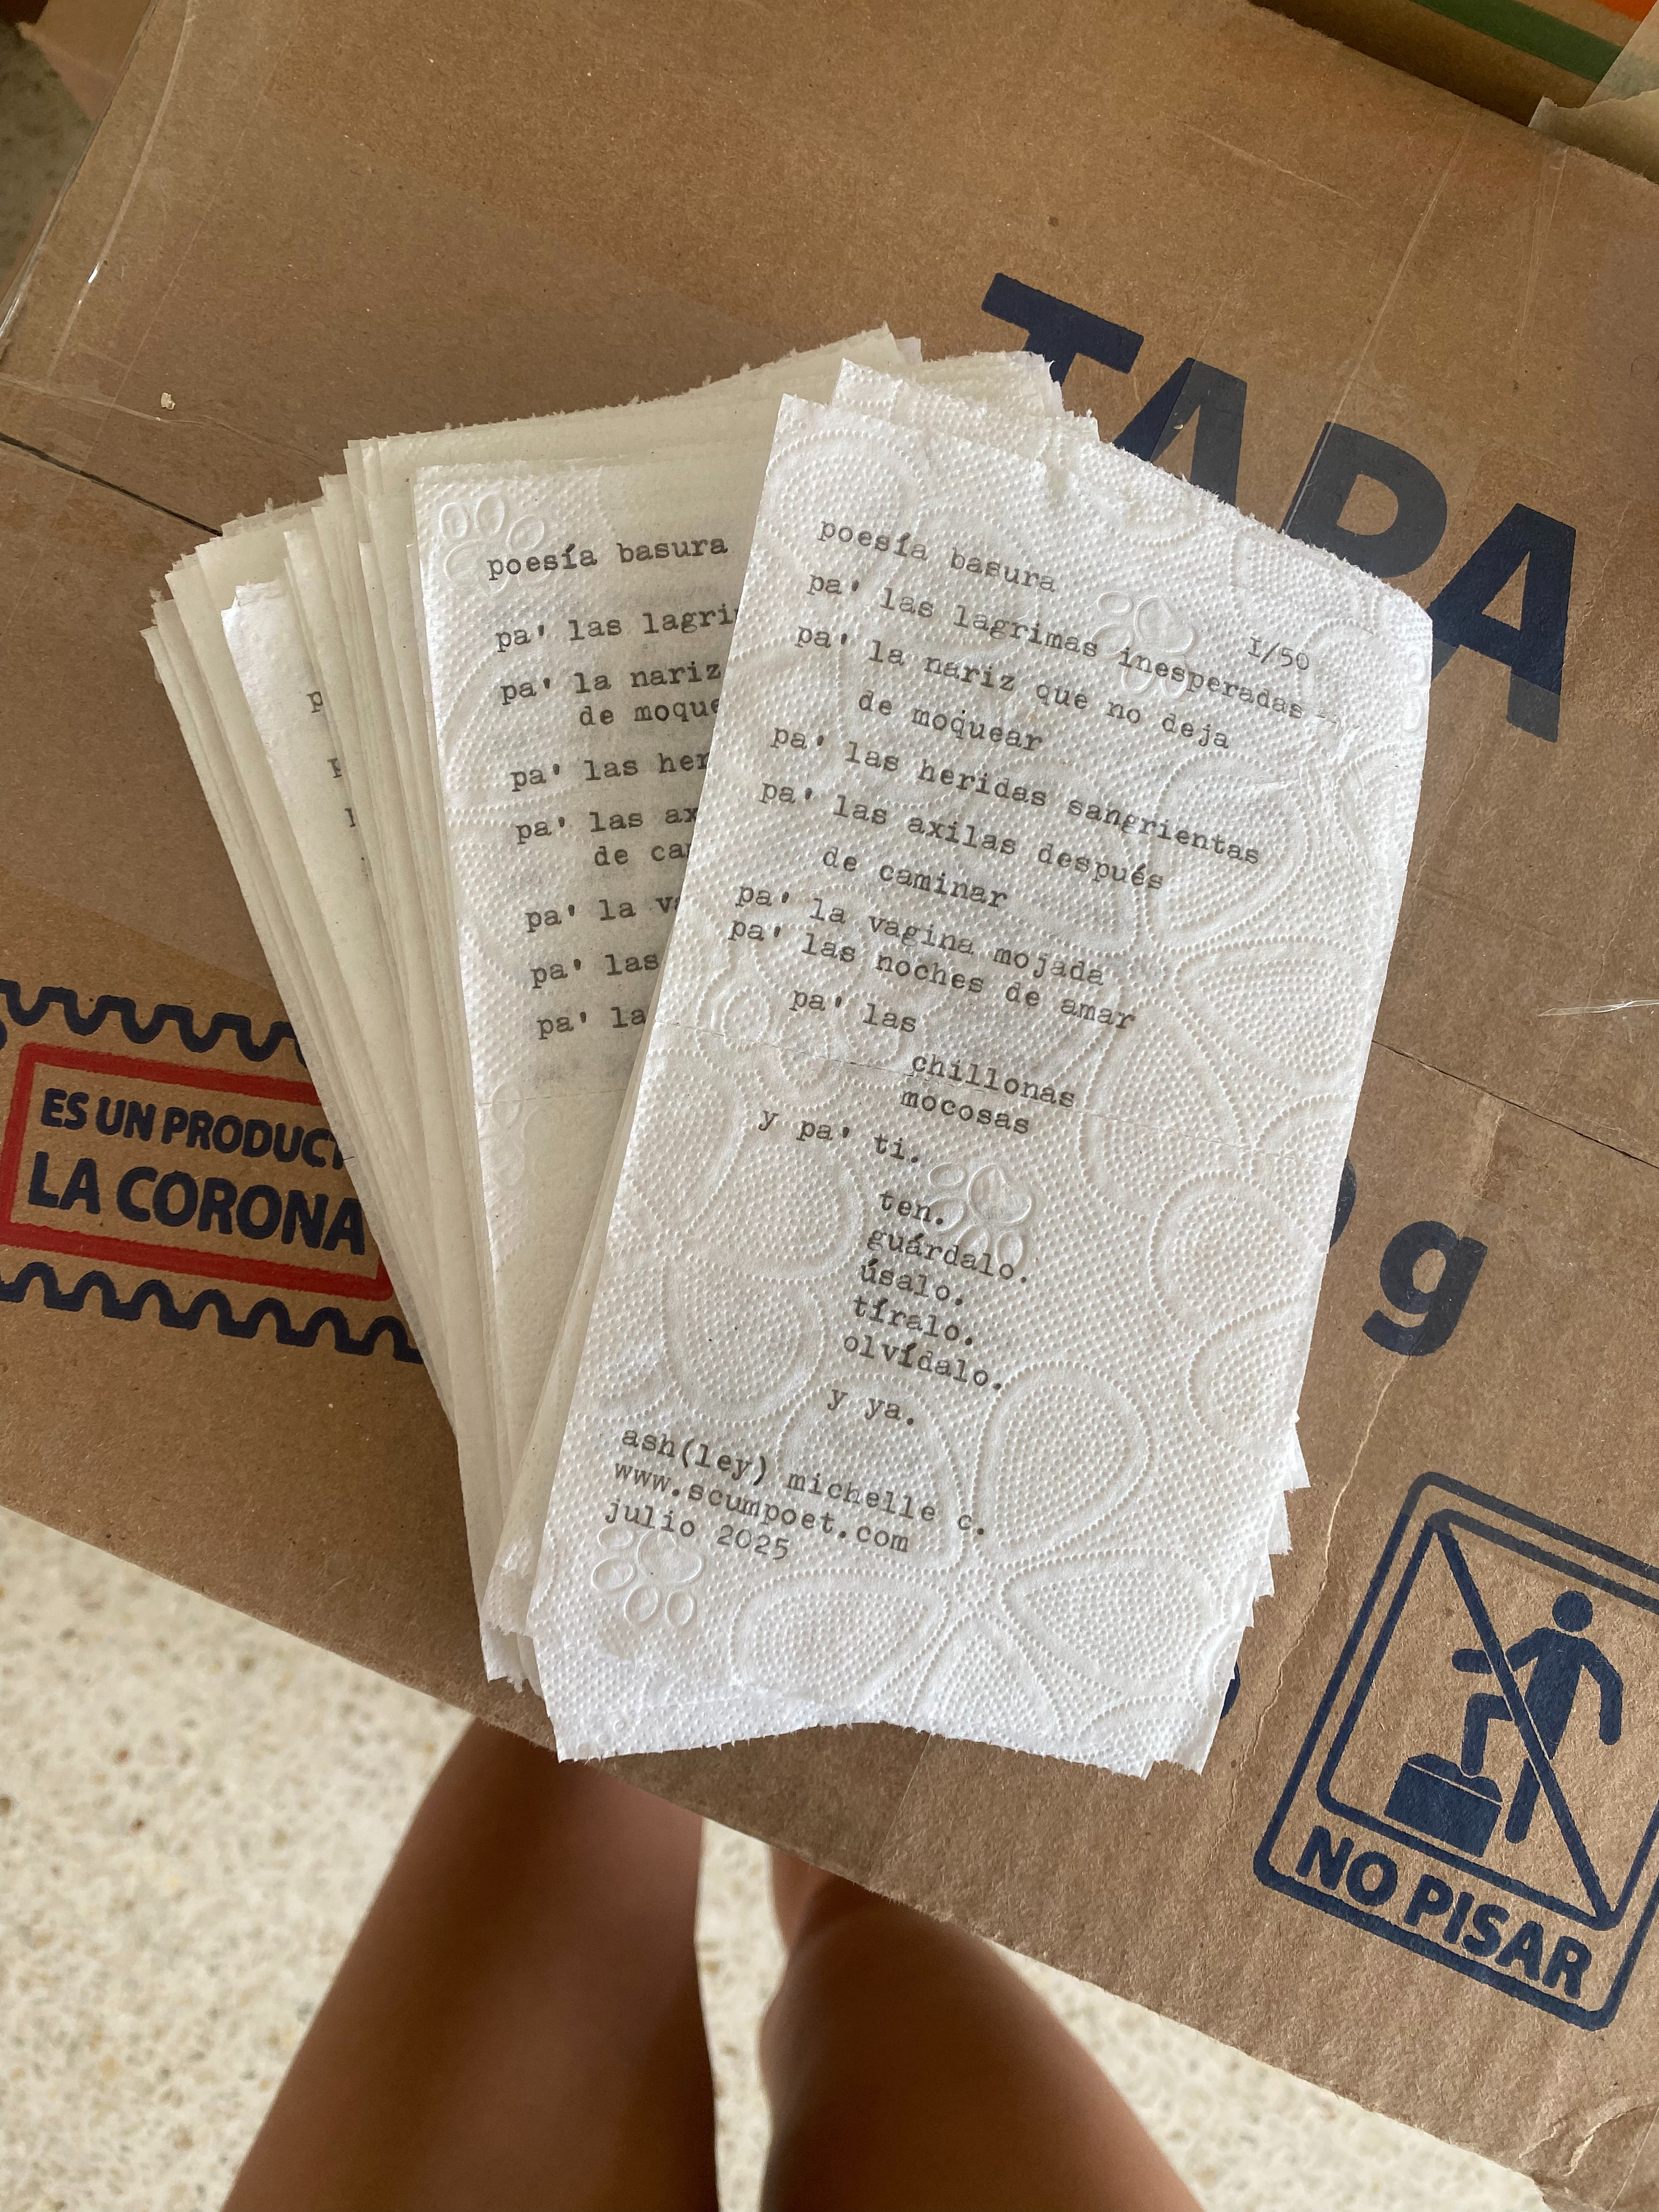 TAPA
g
ES UN PRODUCT
LA CORONA
NO PISAR
poesía basura
pa' las lagri
pa' la nariz
de moque
pa' las her
pa' las ax
de ca
pa' la va
pa' las
pa' la
poesía basura
1/50
pa' las lagrimas inesperadas
pa' la nariz que no deja
de moquear
pa' las heridas sangrientas
pa' las axilas después
de caminar
pa' la vagina mojada
pa' las noches de amar
pa' las
chillonas
mocosas
y pa' ti.
ten.
guárdalo.
úsalo.
tíralo.
olvídalo.
y ya.
ash(ley) michelle c.
www.scumpoet.com
julio 2025